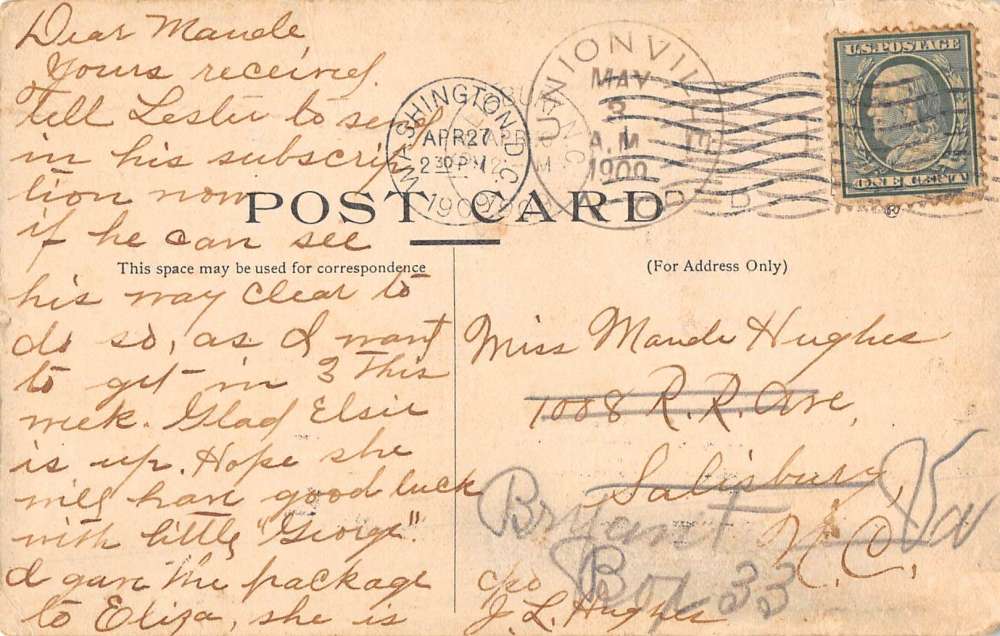 Dear Maude,
Yours received.
Tell Lester to send
in his subscrip
tion now
if he can see
his way clear to
do so, as I want
to get in 3 this
week. Glad Elsie
is up. Hope she
will have good luck
with little "George".
I gave the package
to Eliza, she is
WASHINGTON, D.C.
APR 27
2 30 PM
1909
UNIONVILLE
MAY
A.M.
1909
U.S. POSTAGE
ONE CENT
POST CARD
This space may be used for correspondence
(For Address Only)
Miss Maude Hughes
1008 R. R. Ave,
Salisbury,
N.C.
c/o
J. L. Hughes
Bryant
Box 33